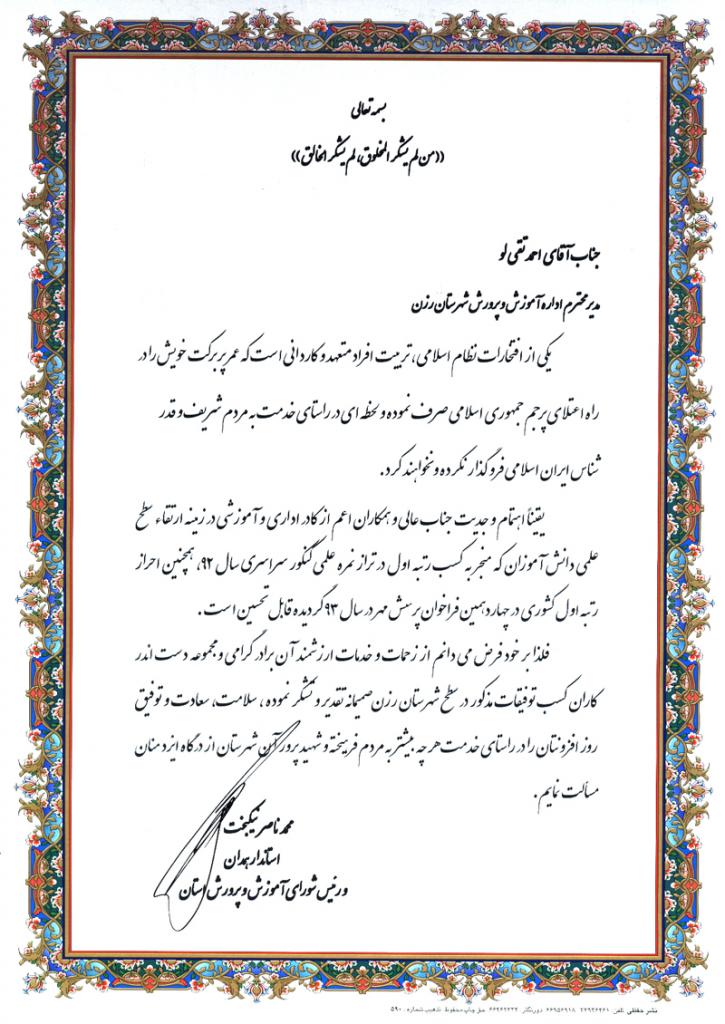 بسمه تعالی
((من لم یشکر المخلوق، لم یشکر الخالق))
جناب آقای احمد تقی لو
مدیر محترم اداره آموزش و پرورش شهرستان رزن
یکی از افتخارات نظام اسلامی، تربیت افراد متعهد و کاردانی است که عمر پر برکت خویش را در
راه اعتلای پرچم جمهوری اسلامی صرف نموده و لحظه ای در راستای خدمت به مردم شریف و قدر
شناس ایران اسلامی فروگذار نکرده و نخواهند کرد.
یقیناً اهتمام و جدیت جناب عالی و همکاران اعم از کادر اداری و آموزشی در زمینه ارتقاء سطح
علمی دانش آموزان که منجر به کسب رتبه اول در تراز نمره علمی کنکور سراسری سال ۹۲، همچنین احراز
رتبه اول کشوری در چهاردهمین فراخوان پرسش مهر در سال ۹۳ گردیده قابل تحسین است.
فلذا بر خود فرض می دانم از زحمات و خدمات ارزشمند آن برادر گرامی و مجموعه دست اندر
کاران کسب توفیقات مذکور در سطح شهرستان رزن صمیمانه تقدیر و تشکر نموده، سلامت، سعادت و توفیق
روز افزونتان را در راستای خدمت هر چه بیشتر به مردم فرهیخته و شهید پرور آن شهرستان از درگاه ایزد منان
مسألت نمایم.
محمد ناصر نیکبخت
استاندار همدان
و رئیس شورای آموزش و پرورش استان
نشر حقیقی تلفن: ۶۶۹۵۶۹۱۸ دورنگار: ۶۶۴۶۲۲۳۲ حق چاپ محفوظ تذهیب شماره: ۵۹۰